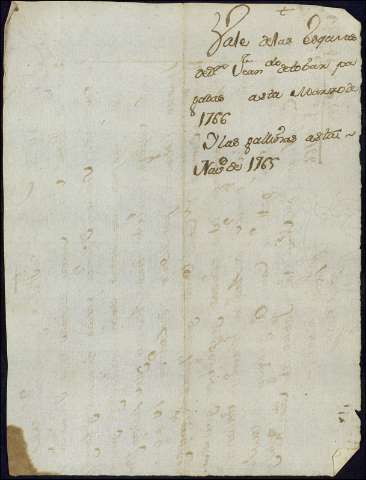 Vale de las Esquinas
de Dn. Juan de tobar pa
gadas asta Marzo de
1766
Y las gallinas asta
Navd. de 1765